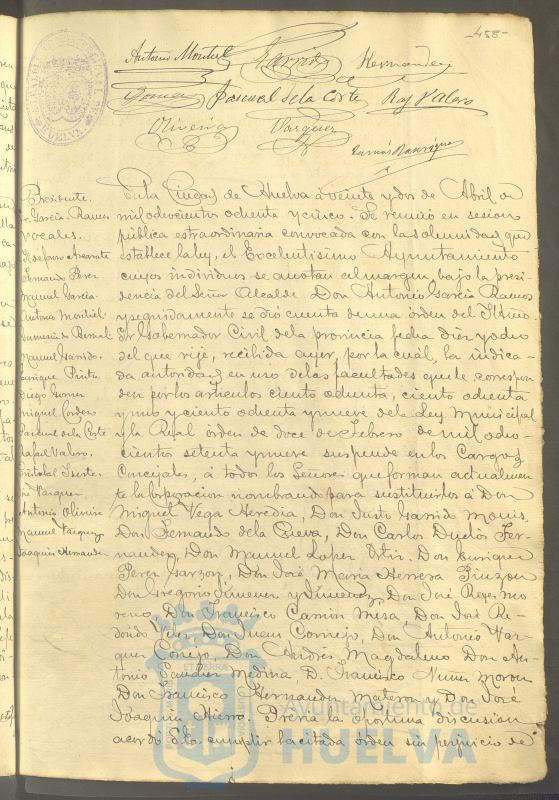 458-
Antonio Montiel Garrido Hernandez
Gomez Pascual de la Corte Raf Valero
Oliveira Vazquez
Presidente.
Sr. Garcia Ramos
Vocales.
Ildefonso
Fernando Perez
Manuel Garcia
Antonio Montiel
Bernal
Manuel Garrido
Enrique Pinto
Diego Gomez
Miguel Cordero
Pascual de la Corte
Rafael Valero
Cristobal
José Vazquez
Antonio Oliveira
Manuel Vazquez
Joaquin Hernandez
En la Ciudad de Huelva á veinte y dos de Abril de
mil ochocientos ochenta y cinco. Se reunió en sesion
pública estraordinaria convocada con la solemnidad que
establece la ley, el Excelentisimo Ayuntamiento
cuyos individuos se anotan al margen, bajo la presi-
dencia del Señor Alcalde Don Antonio Garcia Ramos
y seguidamente se dió cuenta de una órden del Iltmo
Sr Gobernador Civil de la provincia fecha diez y ocho
del que rije, recibida ayer, por la cual, la indica-
da autoridad en uso de las facultades que le correspon
den por los artículos ciento ochenta, ciento ochenta
y uno y ciento ochenta y nueve de la Ley Municipal
y la Real órden de doce de Febrero de mil ocho-
cientos setenta y nueve suspende en los Cargos de
Concejales, á todos los Señores que forman actualmen
te la Corporacion nombrando para sustituirlos á Don
Miguel Vega Heredia, Don Justo Garrido
Don Fernando de la Cueva, Don Carlos Duclós Fer-
nandez, Don Manuel Lopez Don Enrique
Perez Garzon, Don José Maria Herrera Pinzon
Don Gregorio Jimenez y Jimenez, Don José Reyes Mo
reno, Don Francisco Mesa, Don José Re-
dondo Don Juan Cornejo, Don Antonio Vaz-
quez Conejo, Don Andrés Magdaleno Don An-
tonio Medina D. Francisco Nuñez Moron
Don Francisco Hernandez Don José
Joaquin Hierro. Previa la oportuna discusion
acordó cumplir la citada órden sin perjuicio de
Ayuntamiento de
HUELVA